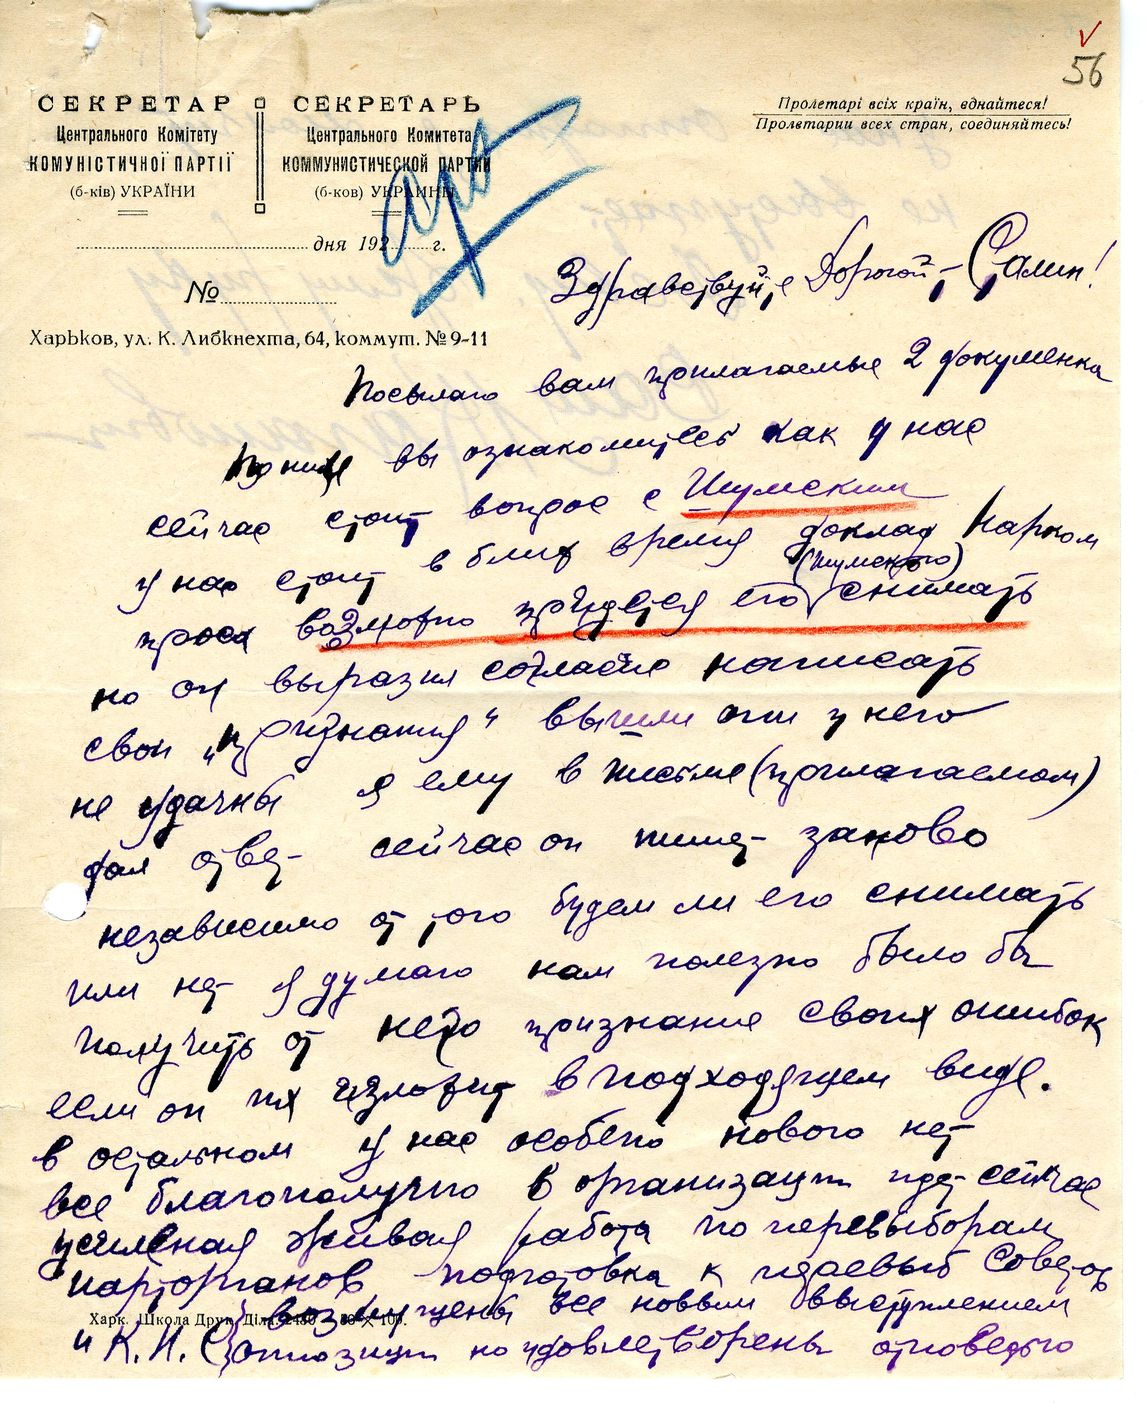 56
СЕКРЕТАР
Центрального Комітету
КОМУНІСТИЧНОЇ ПАРТІЇ
(б-ків) УКРАЇНИ
СЕКРЕТАРЬ
Центрального Комитета
КОММУНИСТИЧЕСКОЙ ПАРТИИ
(б-ков) УКРАИНЫ
Пролетарі всіх країн, єднайтеся!
Пролетарии всех стран, соединяйтесь!
арх
дня 192 г.
№
Харьков, ул. К. Либкнехта, 64, коммут. № 9-11
Здравствуйте Дорогой т. Сталин!
Посылаю вам прилагаемые 2 документа
По ним вы ознакомитесь как у нас
сейчас стоит вопрос с Шумским
у нас стоит в ближ время доклад Нарком
(Шумского)
проса возможно придется его снимать
но он выразил согласие написать
свои „признания" вышли они у него
не удачны я ему в письме (прилагаемом)
дал ответ сейчас он пишет заново
независимо от того будем ли его снимать
или нет я думаю нам полезно было бы
получить от него признание своих ошибок
если он их изложит в подходящем виде.
в остальном у нас особено нового нет
все благополучно в организации идет сейчас
усиленая живая работа по перевыборам
парторганов подготовка к перевыб Советов
и К.Н.С возмущены все новым выступлением
Харк. Школа Друк. Діла.
оппозиции но удовлетворены отповедью